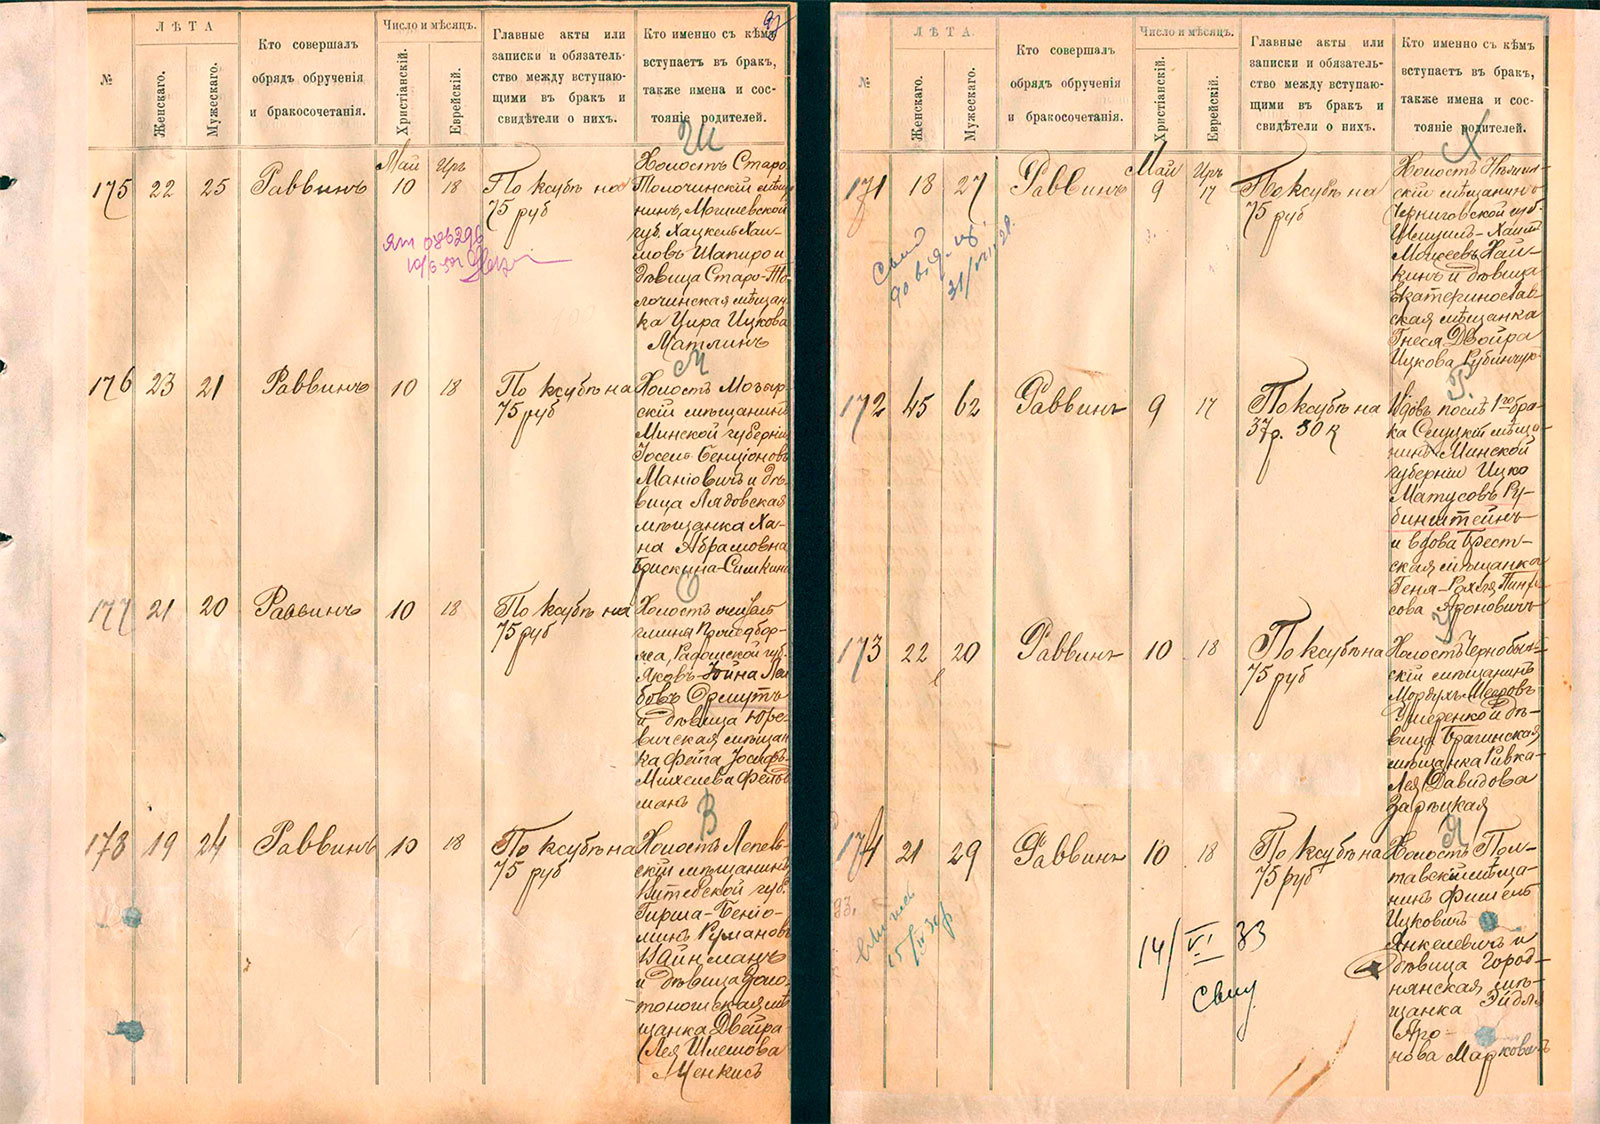 ЛѢТА
Женскаго.
Мужескаго.
№
Кто совершалъ
обрядъ обрученія
и бракосочетанія.
Число и мѣсяцъ.
Христіанскій.
Еврейскій.
Главные акты или
записки и обязатель-
ство между вступаю-
щими въ бракъ и
свидѣтели о нихъ.
Кто именно съ кѣмъ
вступаетъ въ бракъ,
также имена и сос-
тояніе родителей.
Май
Иръ
175 22 25 Раввинъ 10 18
По ксубѣ на
75 руб
Ш
Холостъ Старо
Толочинскій мѣща
нинъ, Могилевской
губ. Хацкель Хаи-
мовъ Шапиро и
дѣвица Старо-То-
лочинская мѣщан
ка Цира Ицкова
Матлинъ
176 23 21 Раввинъ 10 18
По ксубѣ на
75 руб
М
Холостъ Мозыр-
скій мѣщанинъ
Минской губерніи
Іосель Бенціоновъ
Маніовичъ и дѣ-
вица Лядовская
мѣщанка Ха-
на Абрамовна
Брискина-Симкина
177 21 20 Раввинъ 10 18
По ксубѣ на
75 руб
О
Холостъ
Яковъ-Іойна Лей
бовъ Ормутъ
и дѣвица Юре-
вичская мѣщан
ка Фейга Іосифъ-
Михелева Фейгъ
манъ
178 19 24 Раввинъ 10 18
По ксубѣ на
75 руб
В
Холостъ Лепель-
скій мѣщанинъ
Витебской губ.
Гирша-Беніо-
минъ
Вайнманъ
и дѣвица Золо-
тоношская мѣ
щанка Двейра-
Лея Шлемова
Менкисъ
№
ЛѢТА.
Женскаго.
Мужескаго.
Кто совершалъ
обрядъ обрученія
и бракосочетанія.
Число и мѣсяцъ.
Христіанскій.
Еврейскій.
Главные акты или
записки и обязатель-
ство между вступаю-
щими въ бракъ и
свидѣтели о нихъ.
Кто именно съ кѣмъ
вступаетъ въ бракъ,
также имена и сос-
тояніе родителей.
Май
Иръ
171 18 27 Раввинъ 9 17
По ксубѣ на
75 руб
Х
Холостъ Нѣжин-
скій мѣщанинъ
Черниговской губ.
Шмуилъ-Хаимъ
Моисеевъ Хай-
кинъ и дѣвица
Екатеринослав-
ская мѣщанка
Гнеся Двойра
Ицкова Рубинчик
172 45 62 Раввинъ 9 17
По ксубѣ на
37р. 50 к
Р.
Вдовъ послѣ 1го бра-
ка Слуцкій мѣща-
нинъ Минской
губерніи Ицко
Матусовъ Ру-
бинштейнъ
и вдова Брест-
ская мѣщанка
Геня-Рохля Пинха
сова Ароновичъ
173 22 20 Раввинъ 10 18
По ксубѣ на
75 руб
У
Холостъ Чернобыль-
скій мѣщанинъ
Мордухъ Мееровъ
Умеренко и дѣ-
вица Брагинская
мѣщанка Ривка-
Лея Давидова
Зарѣцкая
174 21 29 Раввинъ 10 18
По ксубѣ на
75 руб
Я
Холостъ Пол-
тавскій мѣща-
нинъ Фишель
Ицковичъ
Янкелевичъ и
дѣвица Город-
нянская мѣ-
щанка Эйдля
Аро-
нова Марковичъ
14/VI 33